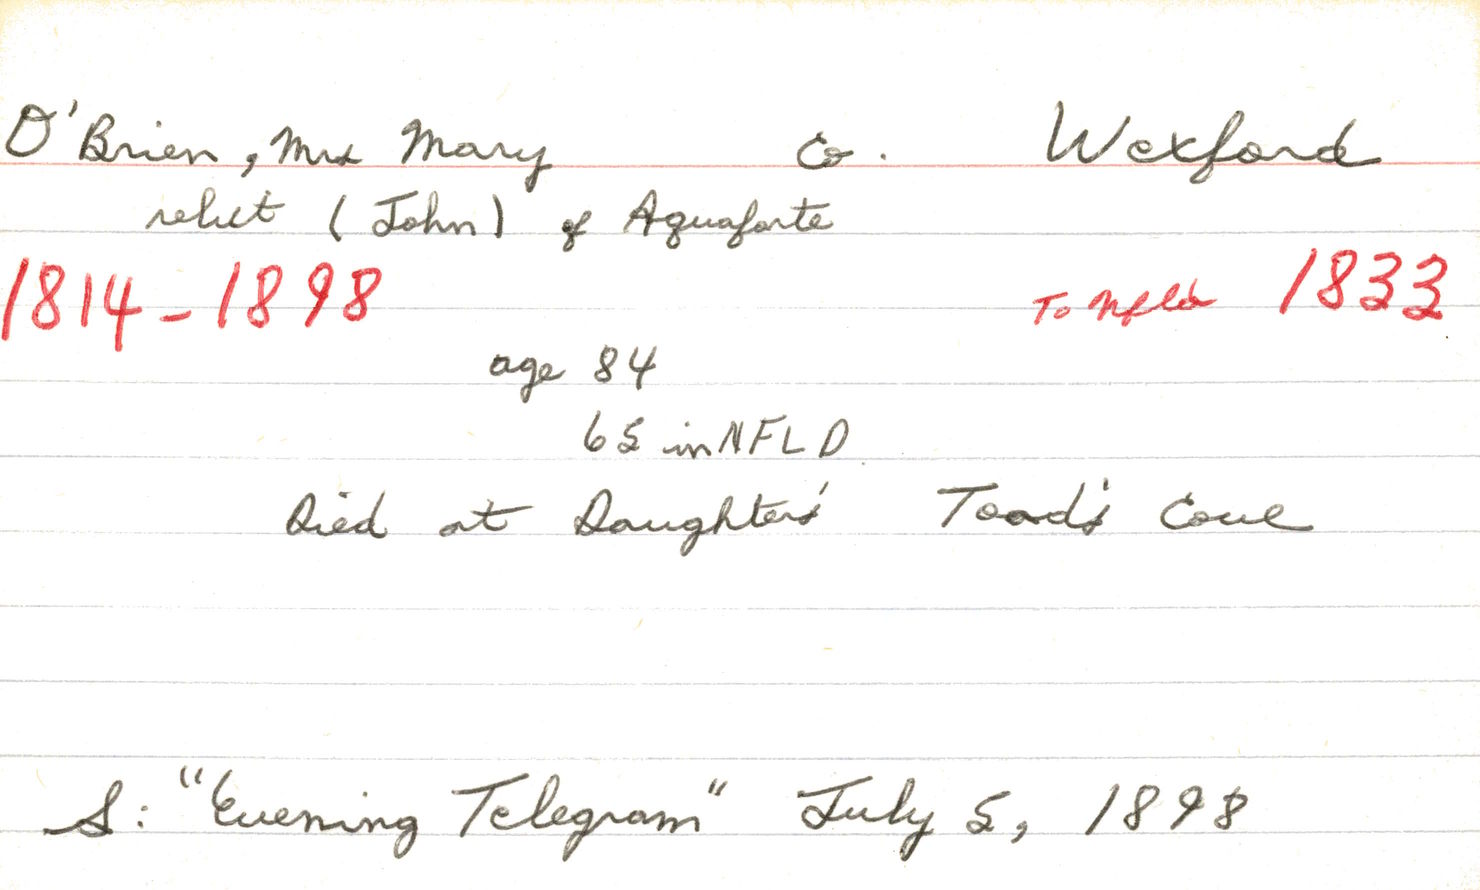 O'Brien, Mrs Mary Co. Wexford
relict (John) of Aquaforte
1814-1898 To Nfld 1833
age 84
65 in NFLD
Died at Daughter's Toad's Cove
S: "Evening Telegram" July 5, 1898